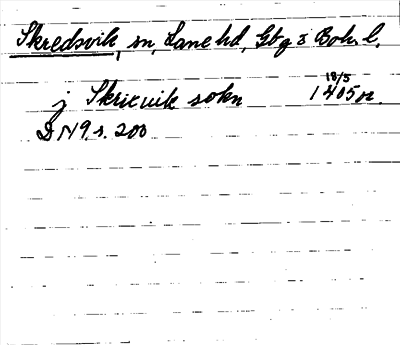 Skredsvik, sn, Lane hd, Gbg o Boh. l.
18/5
j Skricuik sokn 1405 or.
DN9. s. 200